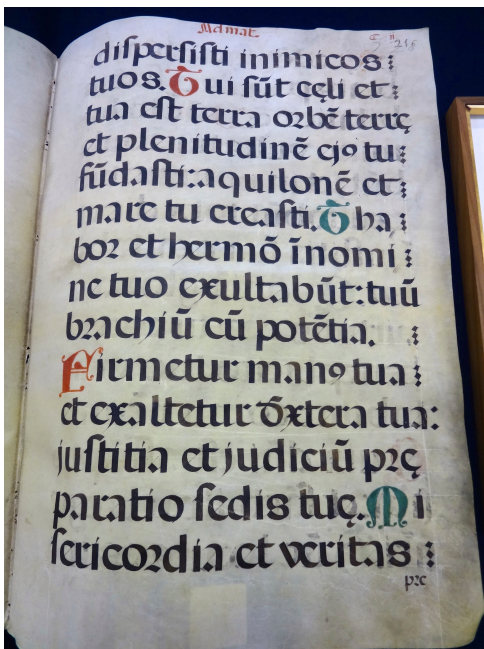 Ad mat.
dispersisti inimicos:
tuos. Tui sūt cęli et:
tua est terra orbē terrę
et plenitudinē ejꝰ tu:
fūdasti: aquilonē et:
mare tu creasti. Tha:
bor et hermō īnomi:
ne tuo exultabūt: tuū
brachiū cū potētia. :
Firmetur manꝰ tua:
et exaltetur dx̄tera tua:
justitia et judiciū prę
paratio sedis tuę. Mi
sericordia et veritas:
prc